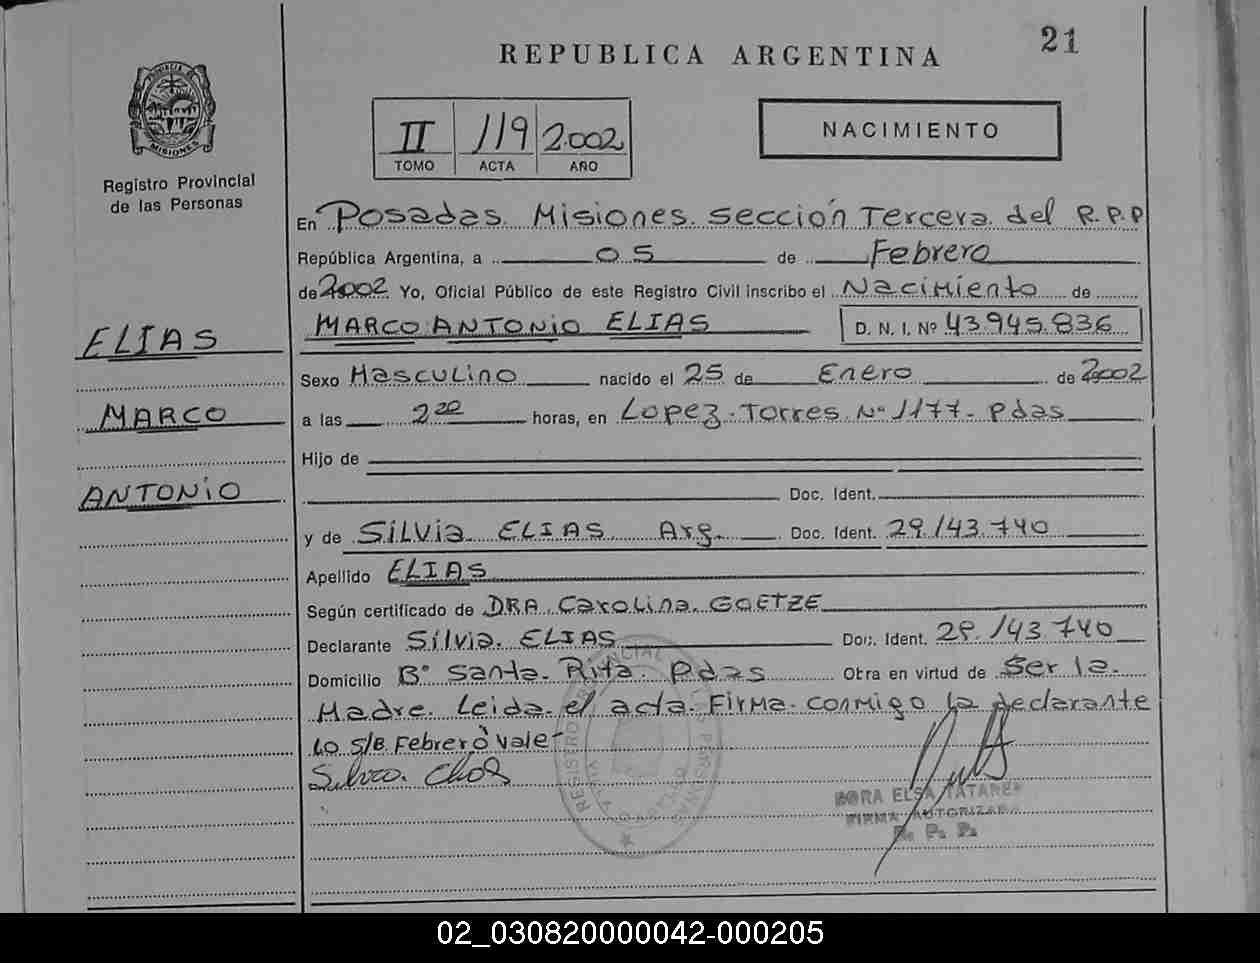 21
REPUBLICA ARGENTINA
PROVINCIA DE MISIONES
Registro Provincial
de las Personas
II 119 2.002
TOMO ACTA AÑO
NACIMIENTO
En Posadas. Misiones. Sección Tercera. del R.P.P
República Argentina, a 05 de Febrero
de 2002 Yo, Oficial Público de este Registro Civil inscribo el Nacimiento de
MARCO ANTONIO ELIAS D. N. I. Nº 43.945.836
ELIAS
MARCO
ANTONIO
Sexo Masculino nacido el 25 de Enero de 2002
a las 2 20 horas, en Lopez. Torres. Nº 1177- Pdas
Hijo de
Doc. Ident.
y de Silvia ELIAS. Arg. Doc. Ident. 29.143.740
Apellido ELIAS
Según certificado de DRA. Carolina. GOETZE
Declarante Silvia. ELIAS Doc. Ident. 29.143.740
Domicilio Bº Santa. Rita. Pdas Obra en virtud de Ser la.
Madre. Leida. el acta. Firma. conmigo la declarante
Lo S/B Febrero Vale-
ELSA
FIRMA AUTORIZADA
R. P. P.
02_030820000042-000205